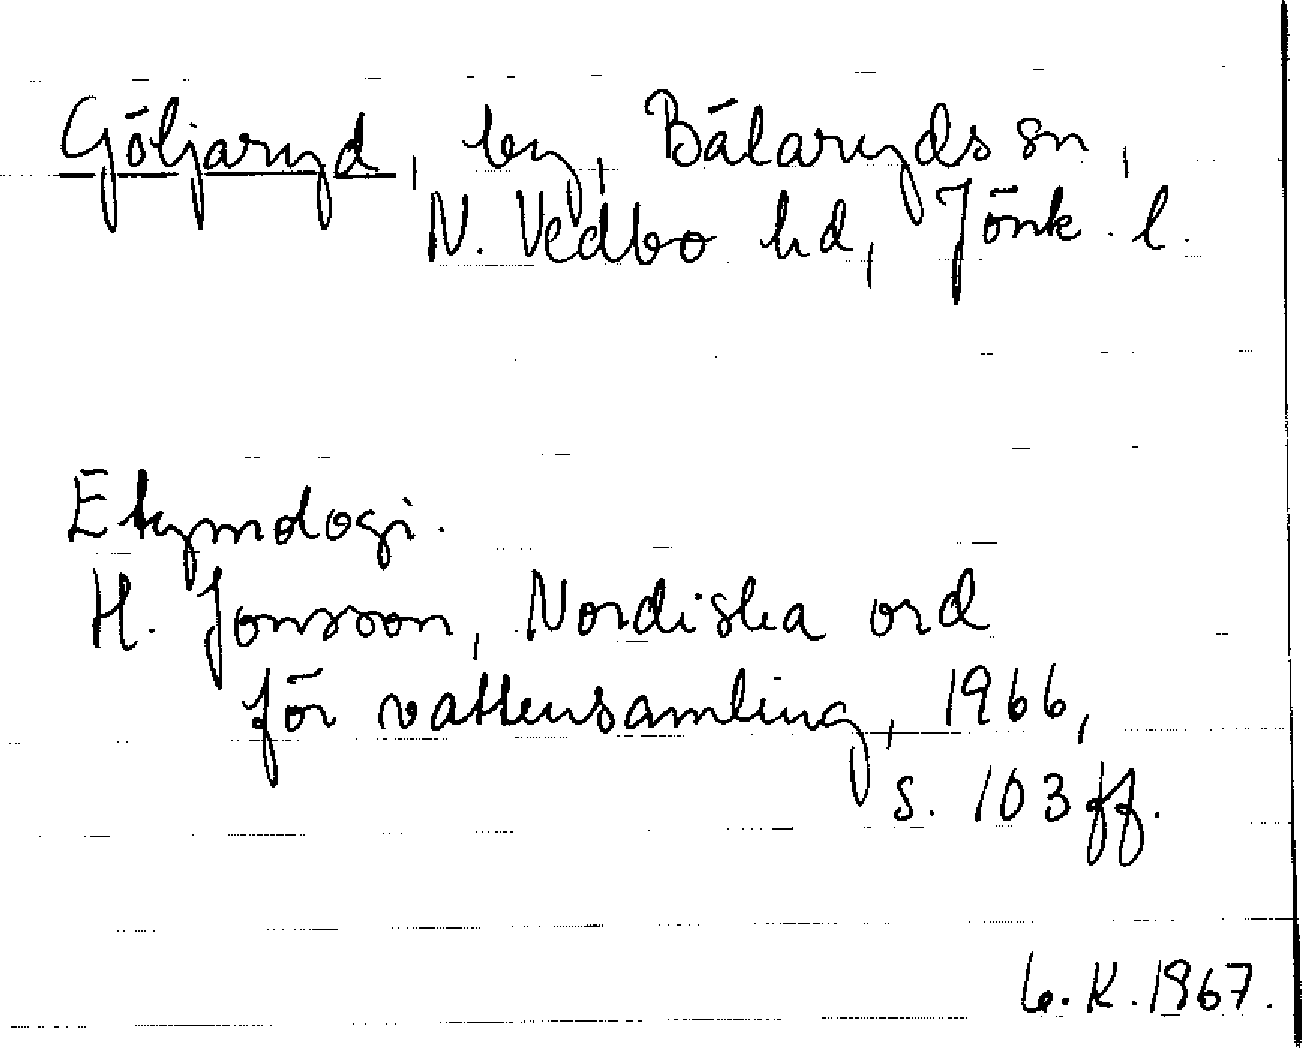 Göljaryd, by, Bälaryds sn,
N. Vedbo hd, Jönk. l.
Etymologi.
H. Jonsson, Nordiska ord
för vattensamling, 1966,
s. 103 ff.
G. K. 1967.